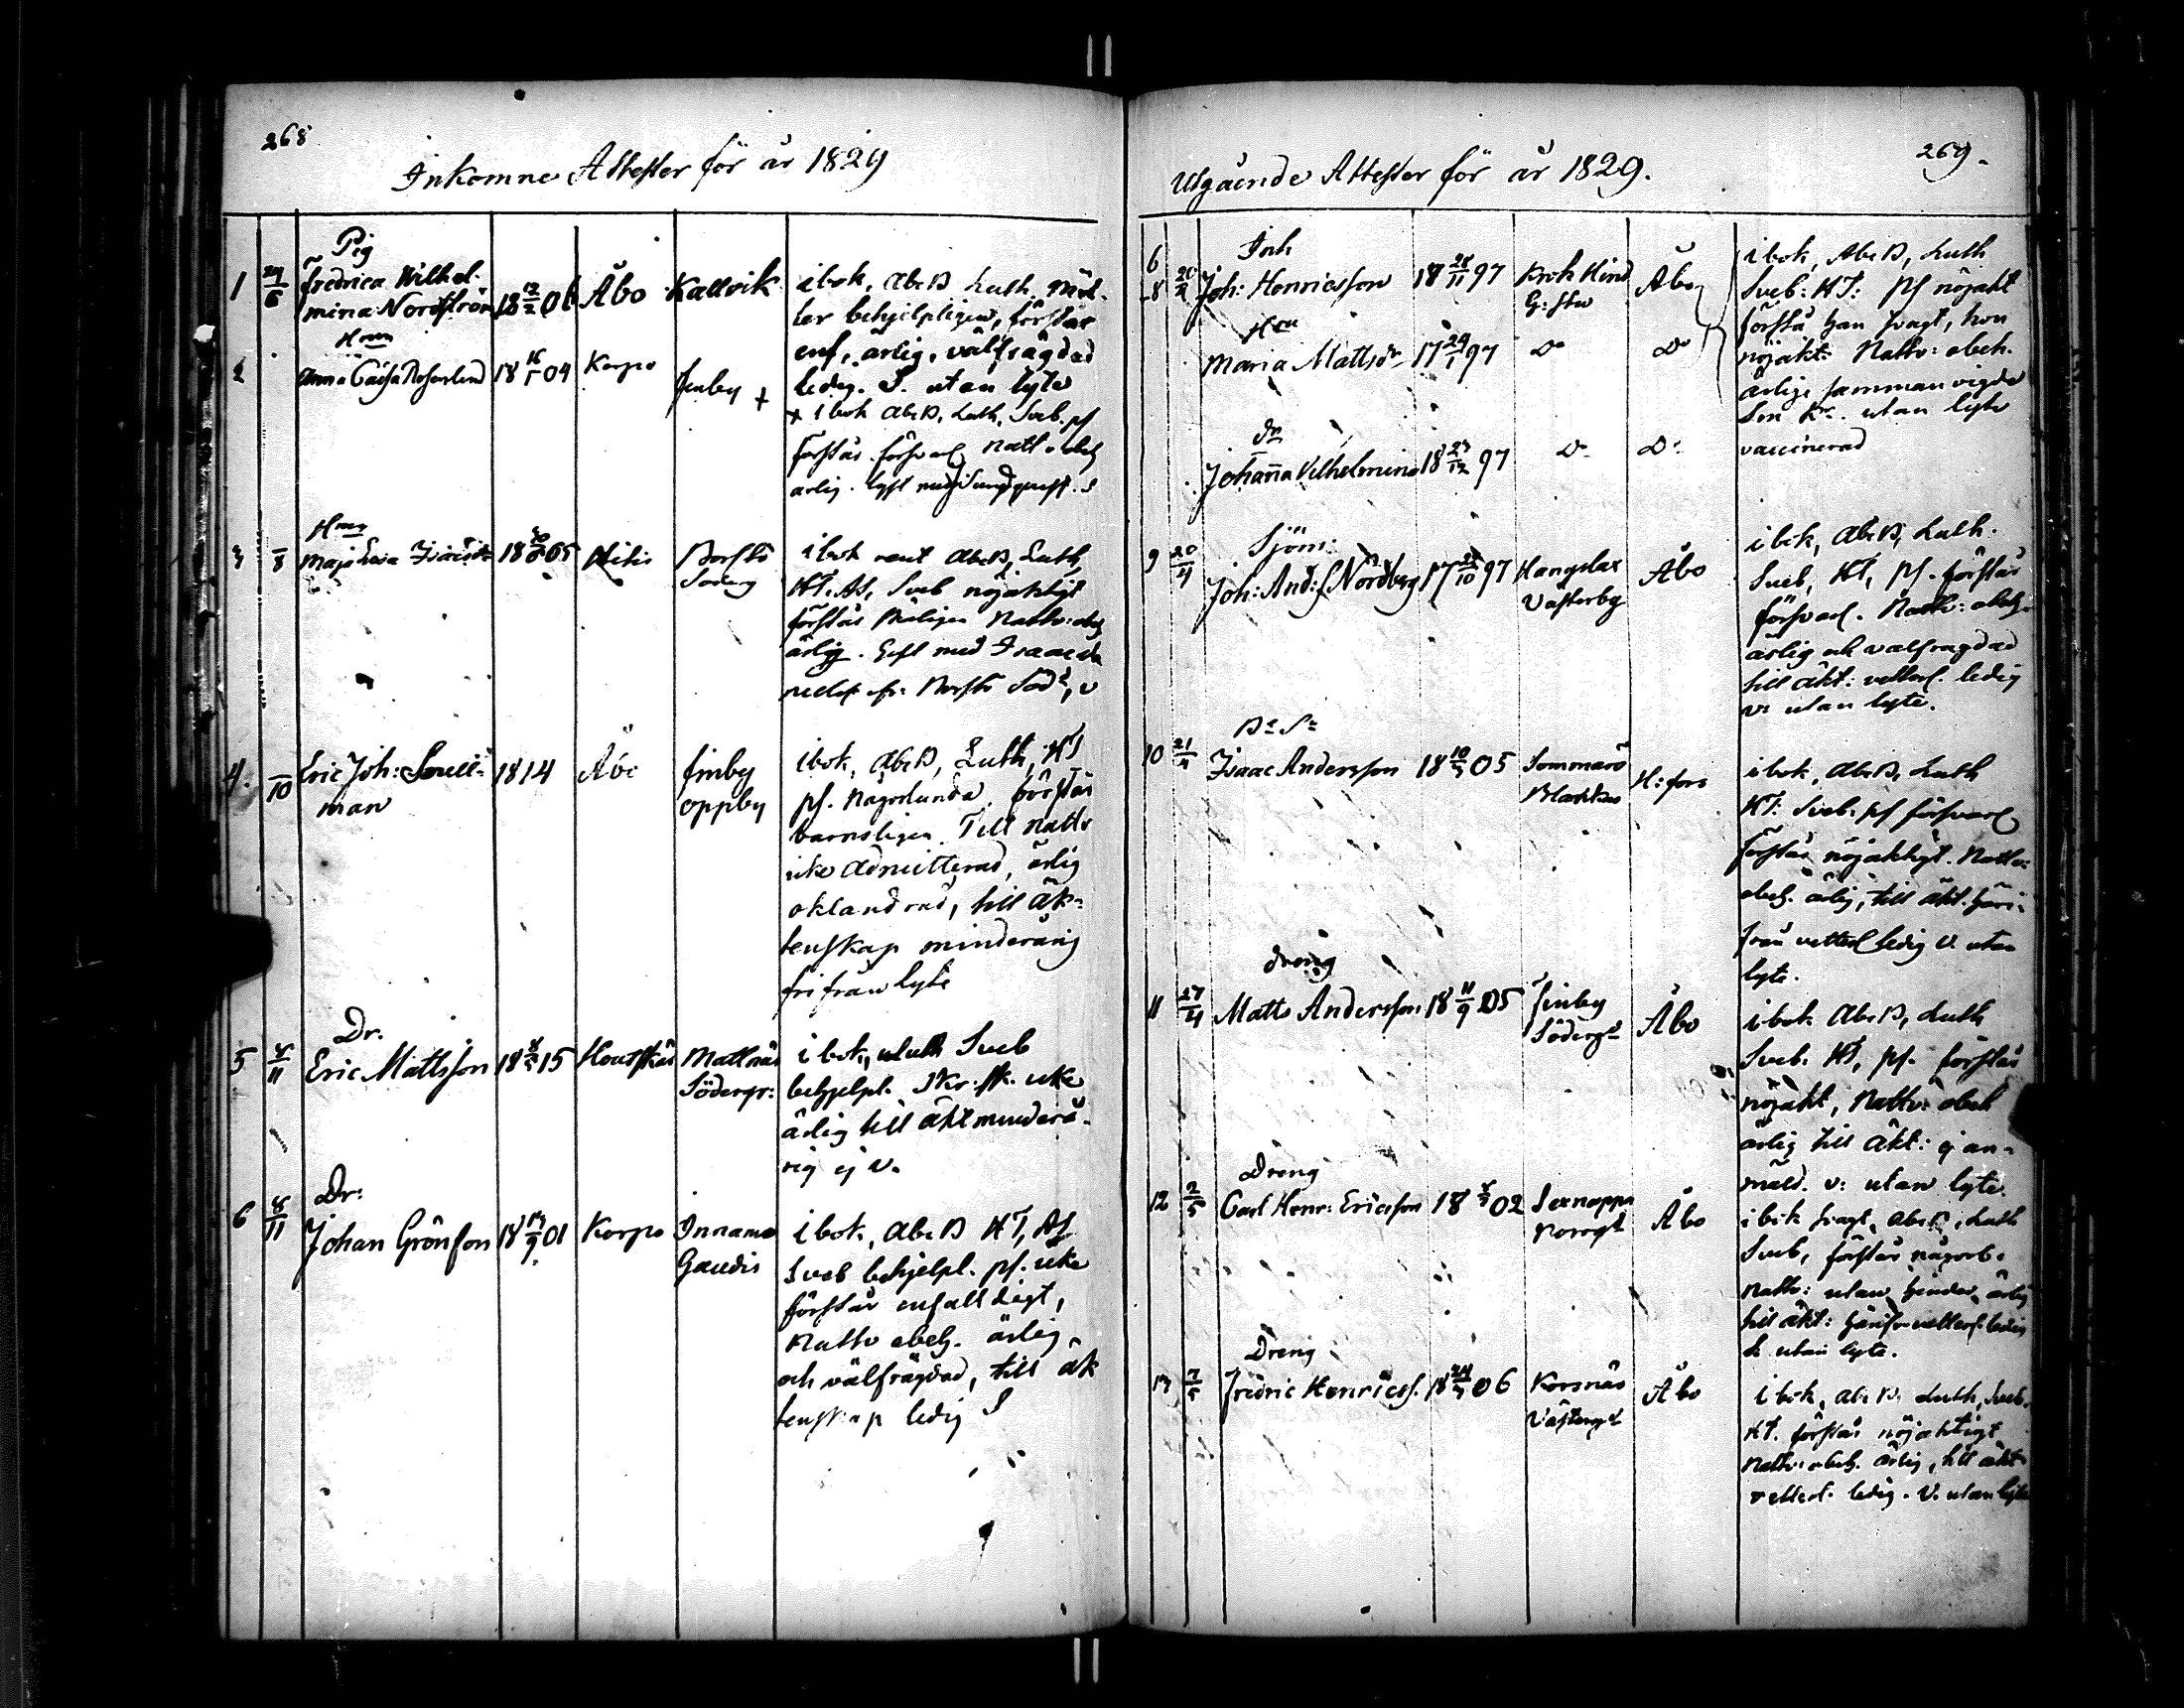 268
Inkomne Attester för år 1829
Pig
1 24/6 Fredrica Wilhel-
mina Nordström 18 12/2 06 Åbo Kallvik
i bok, Abc B, Luth,
ler behjelpligen, förstår
enf., ärlig, välfrägdad
ledig. S. utan lyte
Hon
2 Anna Caisa 18 16/1 04 Korpo Finby +
+ i bok Abc B, Luth, Sveb. ps
förstår försvarl Nattv obeh
ärlig. gift med
Hon
3 /8 Maja Lisa 18 05 Hitis Borstö
i bok rent Abc B, Luth,
HT. As, Sveb nöjaktigt
förstår Nattv: obeh
ärlig. Gift med Isaac
fr: Borstö Söd, v
4. /10 Eric Joh:
man 1814 Åbo Finby
Oppby
i bok, Abc B, Luth, HT
ps. någorlunda. förstår
barnsligen. Till Nattv
icke admitterad, ärlig
oklandrad, till äk-
tenskap minderårig
fri från lyte
Dr.
5 /11 Eric Mattsson 18 15 Houtskär Mattnäs
Södergr:
i bok, Luth Sveb
behjelpl. Skr: sk. icke
ärlig till äkt minderå-
rig ej v.
Dr:
6 8/11 Johan Grönson 18 01 Korpo Innamo
i bok, Abc B HT, As
Sveb behjelpl. ps. icke
förstår enfalldigt,
Nattv obeh. ärlig
och välfrägdad, till äk
tenskap ledig S
269.
Utgående Attester för år 1829.
Inh
6 20/ Joh: Henricsson 18 28/11 97 Åbo
i bok, Abc B, Luth
Sveb: HT: ps nöjakt
förstå han svagt, hon
nöjakt: Nattv: obeh.
ärlige sammanvigde
utan lyte
vaccinerad
Hon
Maria Mattsdr 17 29/1 97 Do Do
-8 dr
Johanna Vilhelmina 18 27/12 97 Do Do
Sjöm:
9 20/4 Joh: And: Nordberg 17 22/10 97 Hangslax
Vesterby Åbo
i bok, Abc B, Luth.
Sveb, HT, ps. förstår
försvarl. Nattv: obeh
ärlig och välfrägdad
till äkt: vetterl. ledig
v: utan lyte.
10 21/4 Isaac Andersson 18 10/3 05 Sommarö H:fors
i bok, Abc B, Luth
HT: Sveb: ps försvarl
förstår nöjaktigt. Nattv:
obeh. ärlig, till äkt. häri-
från vetterl ledig v. utan
lyte.
Dreng
11 27/4 Matts Andersson 18 11/9 05 Finby
Södergd Åbo
i bok Abc B, Luth
Sveb. HT, ps. förstår
nöjakt, Nattv: obeh
ärlig till äkt: ej an-
mäld. v: utan lyte.
Dreng
12 2/5 Carl Henr: Ericsson 18 02 Sexnappa
Norrgd Åbo
i bok svagt, Abc B, Luth
Sveb, förstår någorl.
Nattv: utan hinder, ärlig
till äkt: härifr vetterl. ledig
utan lyte.
Dreng
13 7/5 Fredric Henricss. 18 24/3 06 Korsnäs
Västergd Åbo
i bok, Abc B, Luth, Sveb.
HT. förstår nöjaktigt
Nattv: obeh. ärlig, till äkt
vetterl. ledig. V. utan lyte